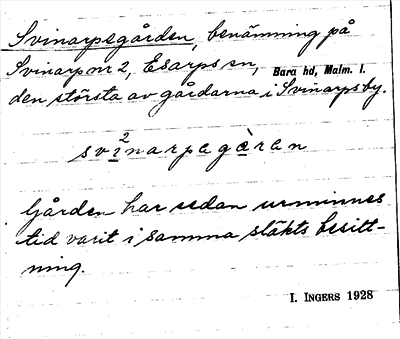 Svinarpsgården, benämning på
Svinarp nr 2, Esarps sn, Bara hd, Malm. l.
den största av gårdarna i Svinarps by.
2
svinarpagæ̀ren
Gården har sedan urminnes
tid varit i samma släkts besitt-
ning.
I. INGERS 1928